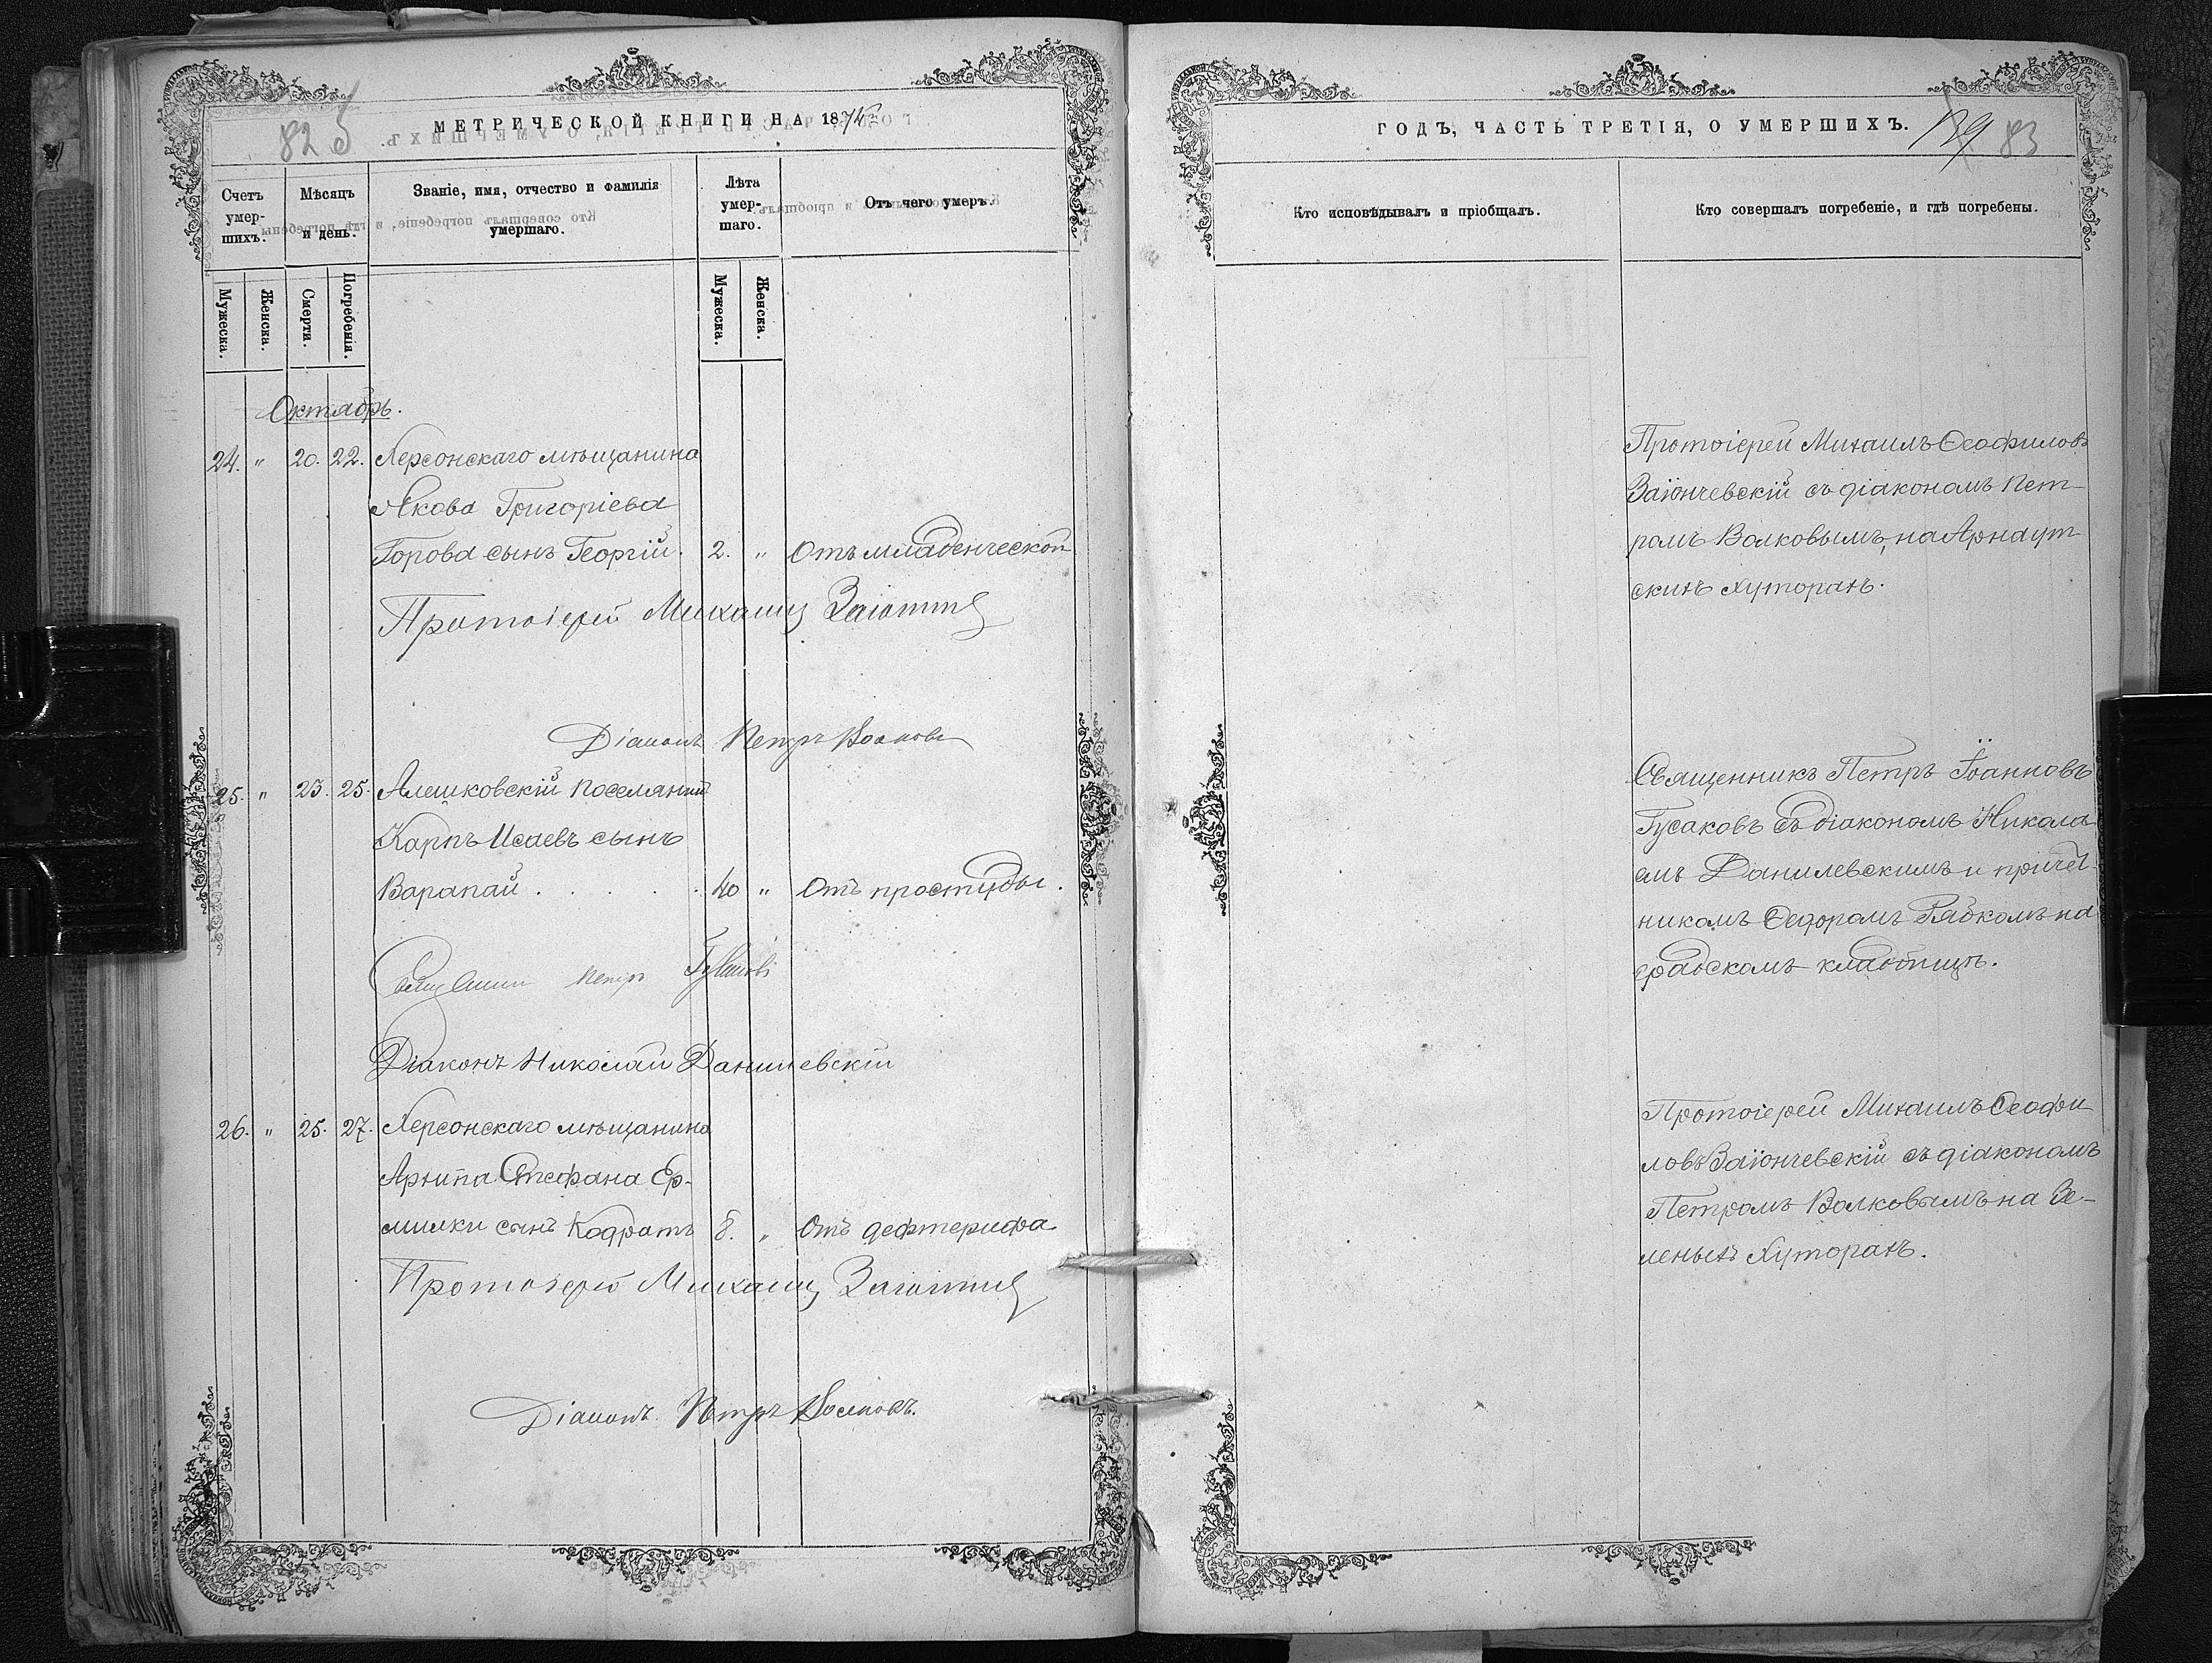 82 об
МЕТРИЧЕСКОЙ КНИГИ НА 1875
Счетъ умер- шихъ.
Мѣсяцъ и день.
Званіе, имя, отчество и фамилія умершаго.
Лѣта умер- шаго.
Отъ чего умеръ.
Мужеска.
Женска.
Смерти.
Погребенія.
Мужеска.
Женска.
Октябрь.
24. " 20. 22. Херсонскаго мѣщанина
Якова Григоріева
Горова сынъ Георгій. 2. " Отъ младенческой
Протоіерей Михаилъ
Діаконъ Петръ Волковъ
25. " 23. 25. Алешковскій поселянинъ
Карпъ Исаевъ сынъ
Варапай . . . . . . 40 " Отъ простуды.
Священникъ Петръ Гусаковъ
Діаконъ Николай Данилевскій
26. " 25. 27. Херсонскаго мѣщанина
Архипа Стефана Ер-
милки сынъ Кодратъ 8. " Отъ дефтерифа
Протоіерей Михаилъ
Діаконъ Петръ Волковъ.
ГОДЪ, ЧАСТЬ ТРЕТІЯ, О УМЕРШИХЪ.
83
Кто исповѣдывалъ и пріобщалъ.
Кто совершалъ погребеніе, и гдѣ погребены.
Протоіерей Михаилъ Ѳеофиловъ
Заіончевскій съ діакономъ Пет-
ромъ Волковымъ, на Арнаут-
скихъ хуторахъ.
Священникъ Петръ Іоанновъ
Гусаковъ съ діакономъ Никола-
емъ Данилевскимъ и причет-
никомъ Ѳедоромъ Рябкомъ на
градскомъ кладбищѣ.
Протоіерей Михаилъ Ѳеофи
ловъ Заіончевскій съ діакономъ
Петромъ Волковымъ на Зе-
леныхъ хуторахъ.